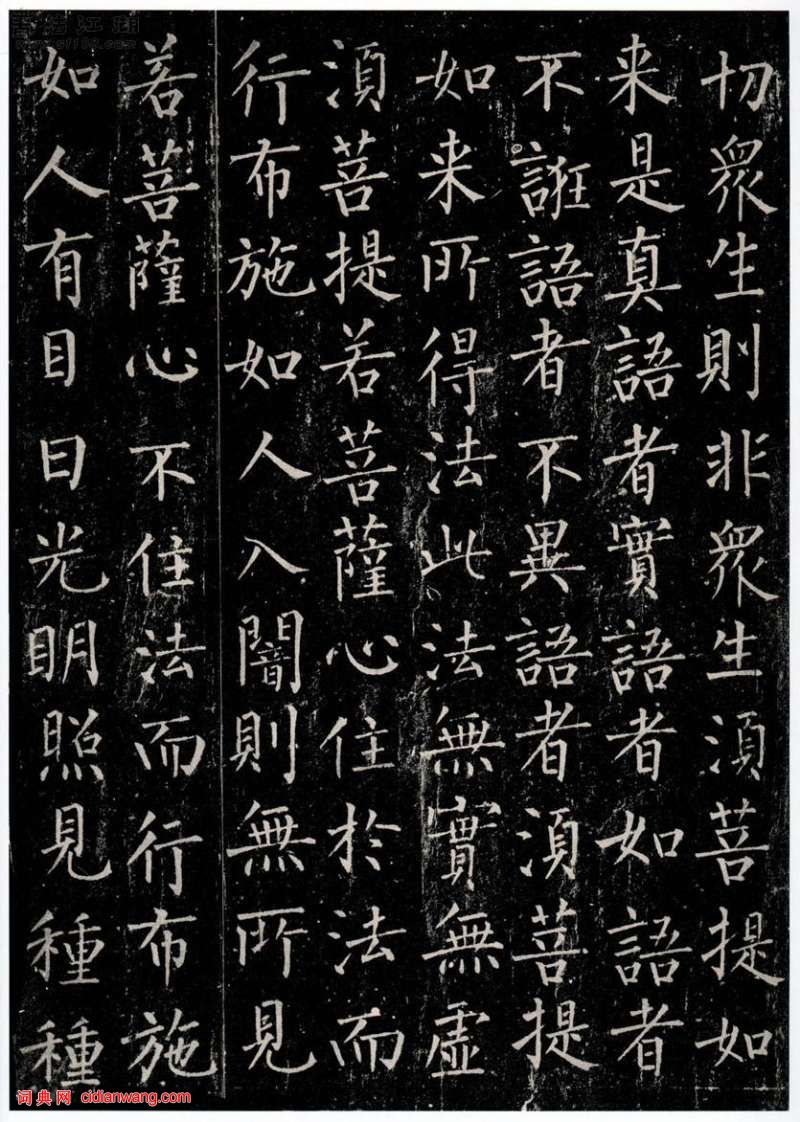 切衆生則非衆生須菩提如
来是真語者實語者如語者
不誑語者不異語者須菩提
如来所得法此法無實無虛
須菩提若菩薩心住於法而
行布施如人入闇則無所見
若菩薩心不住法而行布施
如人有目日光明照見種種
词典网 cidianwang.com